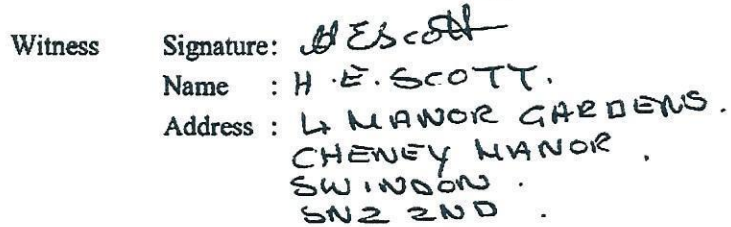 Witness Signature: HEScott
Name : H.E. SCOTT.
Address : 4 MANOR GARDENS.
CHENEY MANOR,
SWINDON.
SN2 2ND.